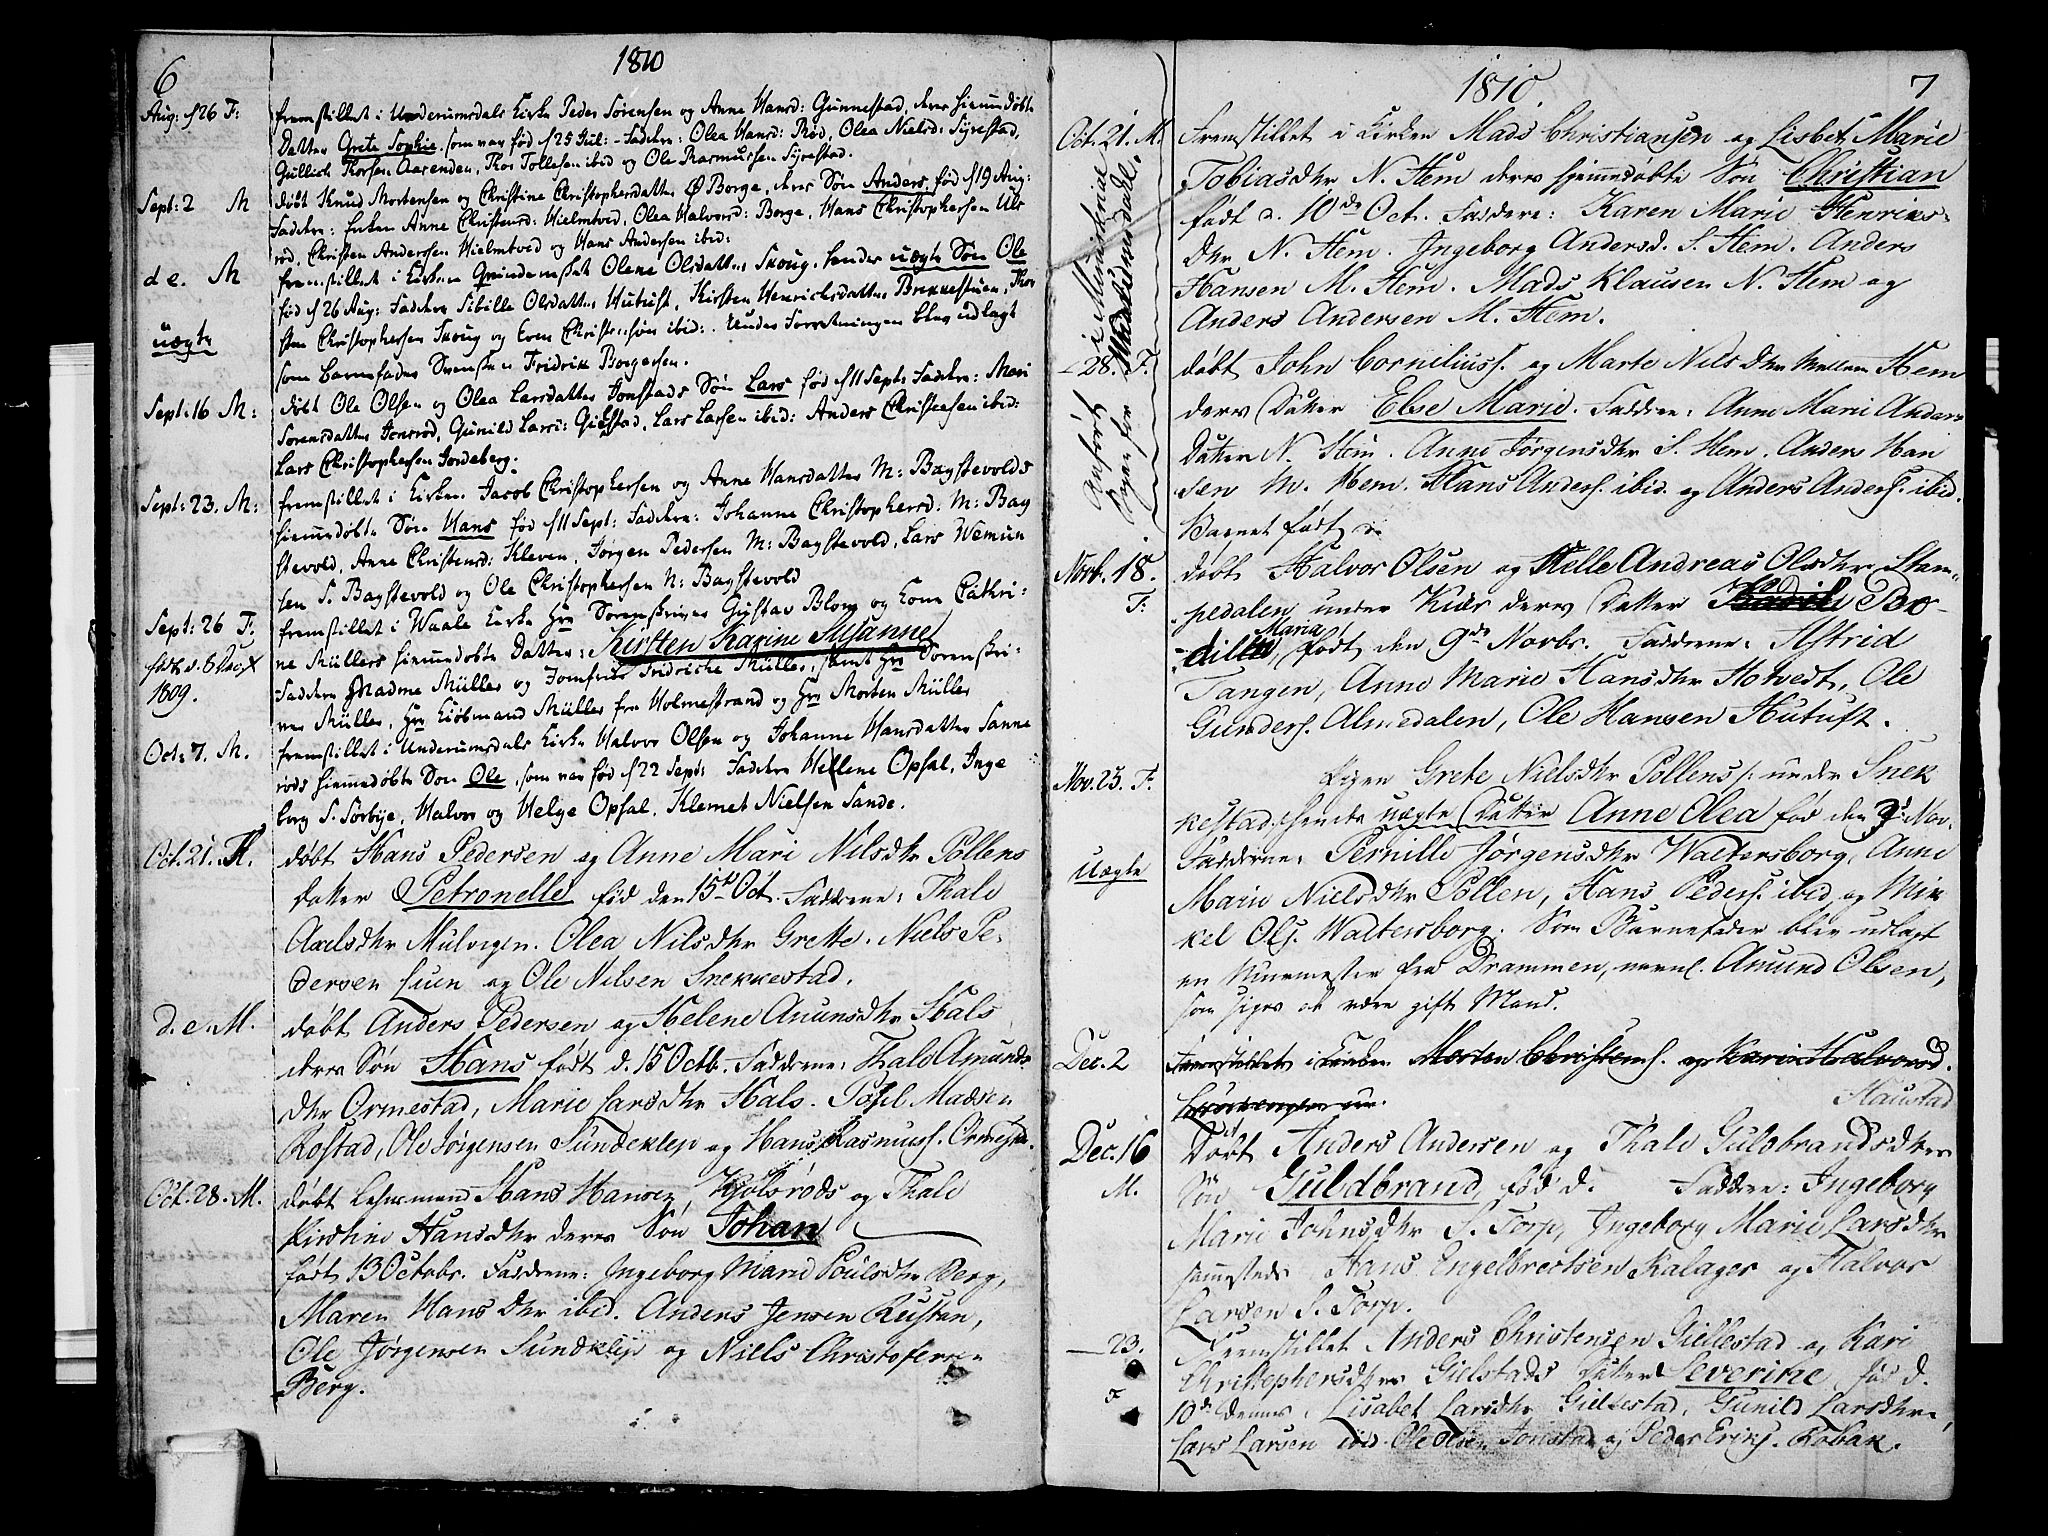 6
1810
Aug: d 26 F: fremstillet i Underumsdals Kirke Peder Sörensen og Anne Hansd: Gunnestad, deres hiemmedöbte
Datter Grete Sophie, som var föd d 25 Jul: Faddere: Olea Hansd: Röd, Olea Nielsd: Syrestad,
Gullich Thorsen Aarenden, Thor Tollefsen ibid og Ole Rasmussen Syrestad.
Sept: 2 M döbt Knud Mortensen og Christine Christophersdatter Ø Borge, deres Sön Anders, föd d 19 Aug:
Faddere: Enken Anne Christensd: Hielmtved, Olea Halvorsd: Borge, Hans Christophersen Uls
röd, Christen Andersen Hielmtved og Hans Andersen ibid:
d e. M fremstillet i Kirken Qvindemsket Olene Olsdatter Skoug, hendes uægte Sön Ole
föd d 26 Aug: Faddere Sibille Olsdatter Hutufst, Kirsten Henrichsdatter Brekkestuen, Thor
uægte sten Christophersen Skoug og Even Christensen ibid:. Under Forretningen blev udlagt
som Barnefader Svensken Fridrik Borgersen.
Sept: 16 M: döbt Ole Olsen og Olea Larsdatter Jonstads Sön Lars föd d 11 Sept: Faddere: Mari
Sorensdatter Jonsröd, Gunild Larsd: Gielstad, Lars Larsen ibid: Anders Christensen ibid:
Lars Christophersen Jordeberg.
Sept: 23. M: fremstillet i Kirken Jacob Christophersen og Anne Hansdatter M: Bagstevolds
hiemmedöbte Sön Hans föd d 11 Sept: Faddere: Johanne Christophersd: M: Bag
stevold, Anne Christensd: Kleven, Jörgen Pedersen M: Bagstevold, Lars Wemun
sen S. Bagstevold og Ole Christophersen N: Bagstevold
Sept: 26 F. fremstillet i Waale Kirke Hr Sorenskriver Gustav Blom og Kone Cathri-
ne Müllers hiemmedöbte Datter: Kirsten Karine Susanne
1809. Faddere Madme Müller og Jomfrue Fridriche Müller, samt Hr Sorenskri-
ver Müller, Hr Kiöbmand Müller fra Holmestrand og Hr Morten Müller
Oct: 7. M. fremstillet i Underumsdals Kirke Halvor Olsen og Johanne Hansdatter Sanne
röds hiemmedöbte Sön Ole, som var föd d 22 Sept: Faddere Hellene Opsal, Inge
borg S. Sörbye, Halvor og Helge Opsal, Klemet Nielsen Sande.
Oct. 21. M. döbt Hans Pedersen og Anne Mari Nilsdtr Pollens
datter Petronelle föd den 15de Oct. Fadderne: Thale
Axelsdtr Mulvegen. Olea Nilsdtr Grette. Niels Pe-
dersen Luen og Ole Nilsen Snekkestad.
d. e. M. döbt Anders Pedersen og Helene Anunsdtr Hals
deres Sön Hans födt d. 15 Octb. Fadderne: Thale Amunds
dtr Ormestad, Marie Larsdtr Hals. Madsen
Rostad, Ole Jörgensen Sundeklep og Hans Rasmuss. Ormestad.
Oct. 28. M. döbt Lehnsmand Hans Hansen Kjölsröds og Thale
Kirstine Hansdtr deres Sön Johan
födt 13 Octobr. Fadderne: Ingeborg Marie Poulsdtr Berg,
Maren Hansdtr ibid. Anders Jensen Rustan,
Ole Jörgensen Sundeklep og Niels Christofersen
Berg.
1810.
7
anfört
Oct. 21. M. Fremstillet i Kirken Mads Christiansen og Lisbet Marie
Tobiasdtr N. Hem deres hjemmedöbte Sön Christian
födt d. 10de Oct. Faddere: Karen Marie Henriks-
dtr N. Hem. Ingeborg Andersd. S. Hem. Anders
Hansen M. Hem. Mads Klausen N. Hem og
Anders Andersen M. Hem.
- 28. F. döbt John Corneliuss. og Marte Nilsdtr Mellem Hem
deres Datter Else Marie. Faddere: Anne Marie Anders
Datter N. Hem. Anne Jörgensdtr S. Hem. Anders Han
sen M. Hem. Hans Anders. ibid. og Anders Anders. ibid.
Barnet födt d.
Novb. 18. F: döbt Halvor Olsen og Helle Andreas Olsdtr Stam-
pedalen under deres Datter Bo-
dille Maria, födt den 9de Novbr. Fadderne: Astrid
Tangen, Anne Marie Hansdtr Hotvedt, Ole
Gunders. Almedalen, Ole Hansen Hutuft.
Nov. 25. F. Pigen Grete Nielsdtr Pollens /: under Snek
kestad :/ hendes uægte Datter Anne Olea föd den 3d Nov.
Uægte Fadderne: Pernille Jörgensdtr Waltersborg, Anne
Marie Nielsdtr Pollen, Hans Peders. ibid. og Mik
kel Ols. Waltersborg. Som Barnefader blev udlagt
en fra Drammen, navnl. Amund Olsen,
som siges at være gift Mand.
Dec. 2 Fremstillet i Kirken Morten Christens. og Karen Halvorsd.
Haustad
Dec. 16 M. Döbt Anders Andersen og Thale Gulbrandsdtrs
Sön Guldbrand, föd d. Faddere: Ingeborg
Marie Johnsdtr S. Torp, Ingeborg Marie Larsdtr
sammesteds Hans Engelbrectsen Kalager og Halvor
Larsen S. Torp.
- 23. F Fremstillet Anders Christensen Gielstad og Kari
Christophersdtrs Gielstads Datter Severine, föd d.
10de dennes. Lisabet Larsdtr Gielstad, Gunild Larsdtr,
Lars Larsen ibid. Ole Olsen Jonstad og Peder Eriks. Kobak.